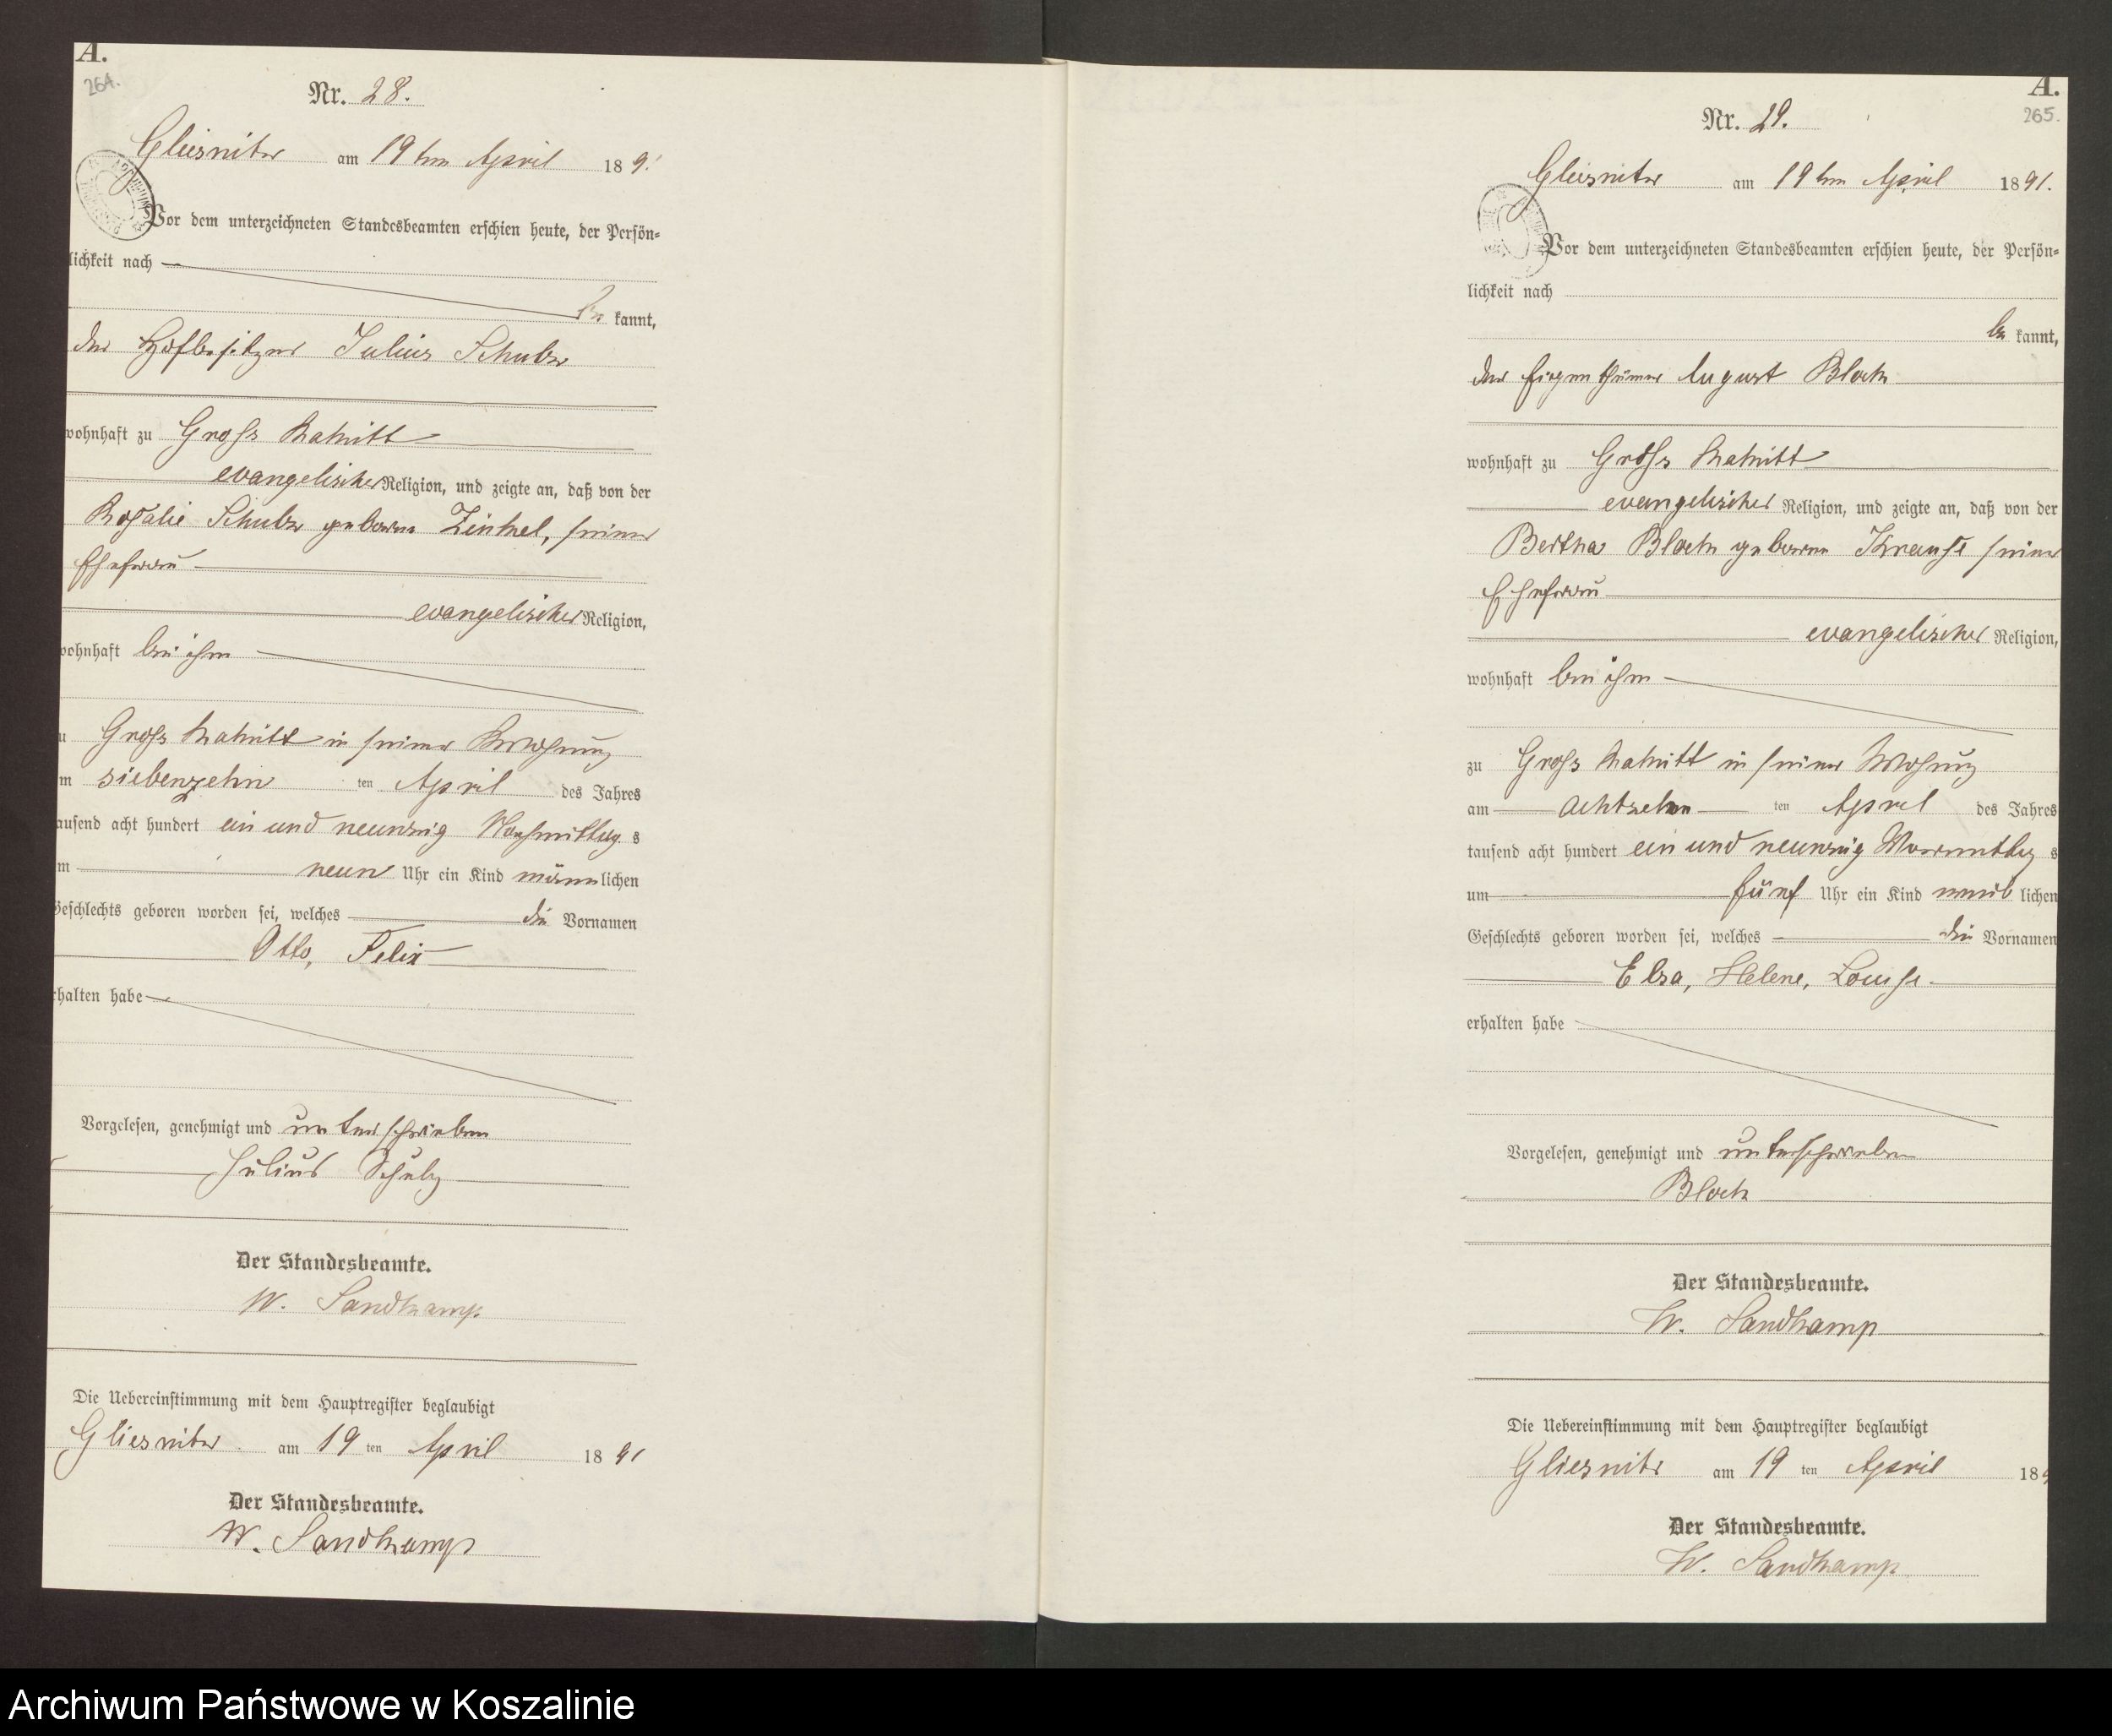 A.
264.
Nr. 28.
Gliesnitz am 19ten April 1891
Vor dem unterzeichneten Standesbeamten erschien heute, der Persön-
lichkeit nach
be kannt,
der Hofbesitzer Julius Schulz
wohnhaft zu Gross
evangelischer Religion, und zeigte an, daß von der
Rosalie Schulz geborne seiner
Ehefrau
evangelischer Religion,
wohnhaft bei ihm
zu Gross in seiner Wohnung
am siebenzehn ten April des Jahres
tausend acht hundert ein und neunzig Nachmittag s
um neun Uhr ein Kind männlichen
Geschlechts geboren worden sei, welches die Vornamen
Otto, Felix
erhalten habe
Vorgelesen, genehmigt und unterschrieben
Julius Schulz
Der Standesbeamte.
W. Sandkamp
Die Uebereinstimmung mit dem Hauptregister beglaubigt
Gliesnitz am 19 ten April 1891
Der Standesbeamte.
W. Sandkamp
A.
265.
Nr. 29.
Gliesnitz am 19ten April 1891.
Vor dem unterzeichneten Standesbeamten erschien heute, der Persön-
lichkeit nach
be kannt,
der Eigenthümer August Block
wohnhaft zu Gross
evangelischer Religion, und zeigte an, daß von der
Bertha Block geborne Krause seiner
Ehefrau
evangelischer Religion,
wohnhaft bei ihm
zu Gross in seiner Wohnung
am achtzehn ten April des Jahres
tausend acht hundert ein und neunzig Vormittag s
um fünf Uhr ein Kind weiblichen
Geschlechts geboren worden sei, welches die Vornamen
Elsa, Helene, Louise
erhalten habe
Vorgelesen, genehmigt und unterschrieben
Block
Der Standesbeamte.
W. Sandkamp
Die Uebereinstimmung mit dem Hauptregister beglaubigt
Gliesnitz am 19 ten April 189
Der Standesbeamte.
W. Sandkamp
Archiwum Państwowe w Koszalinie